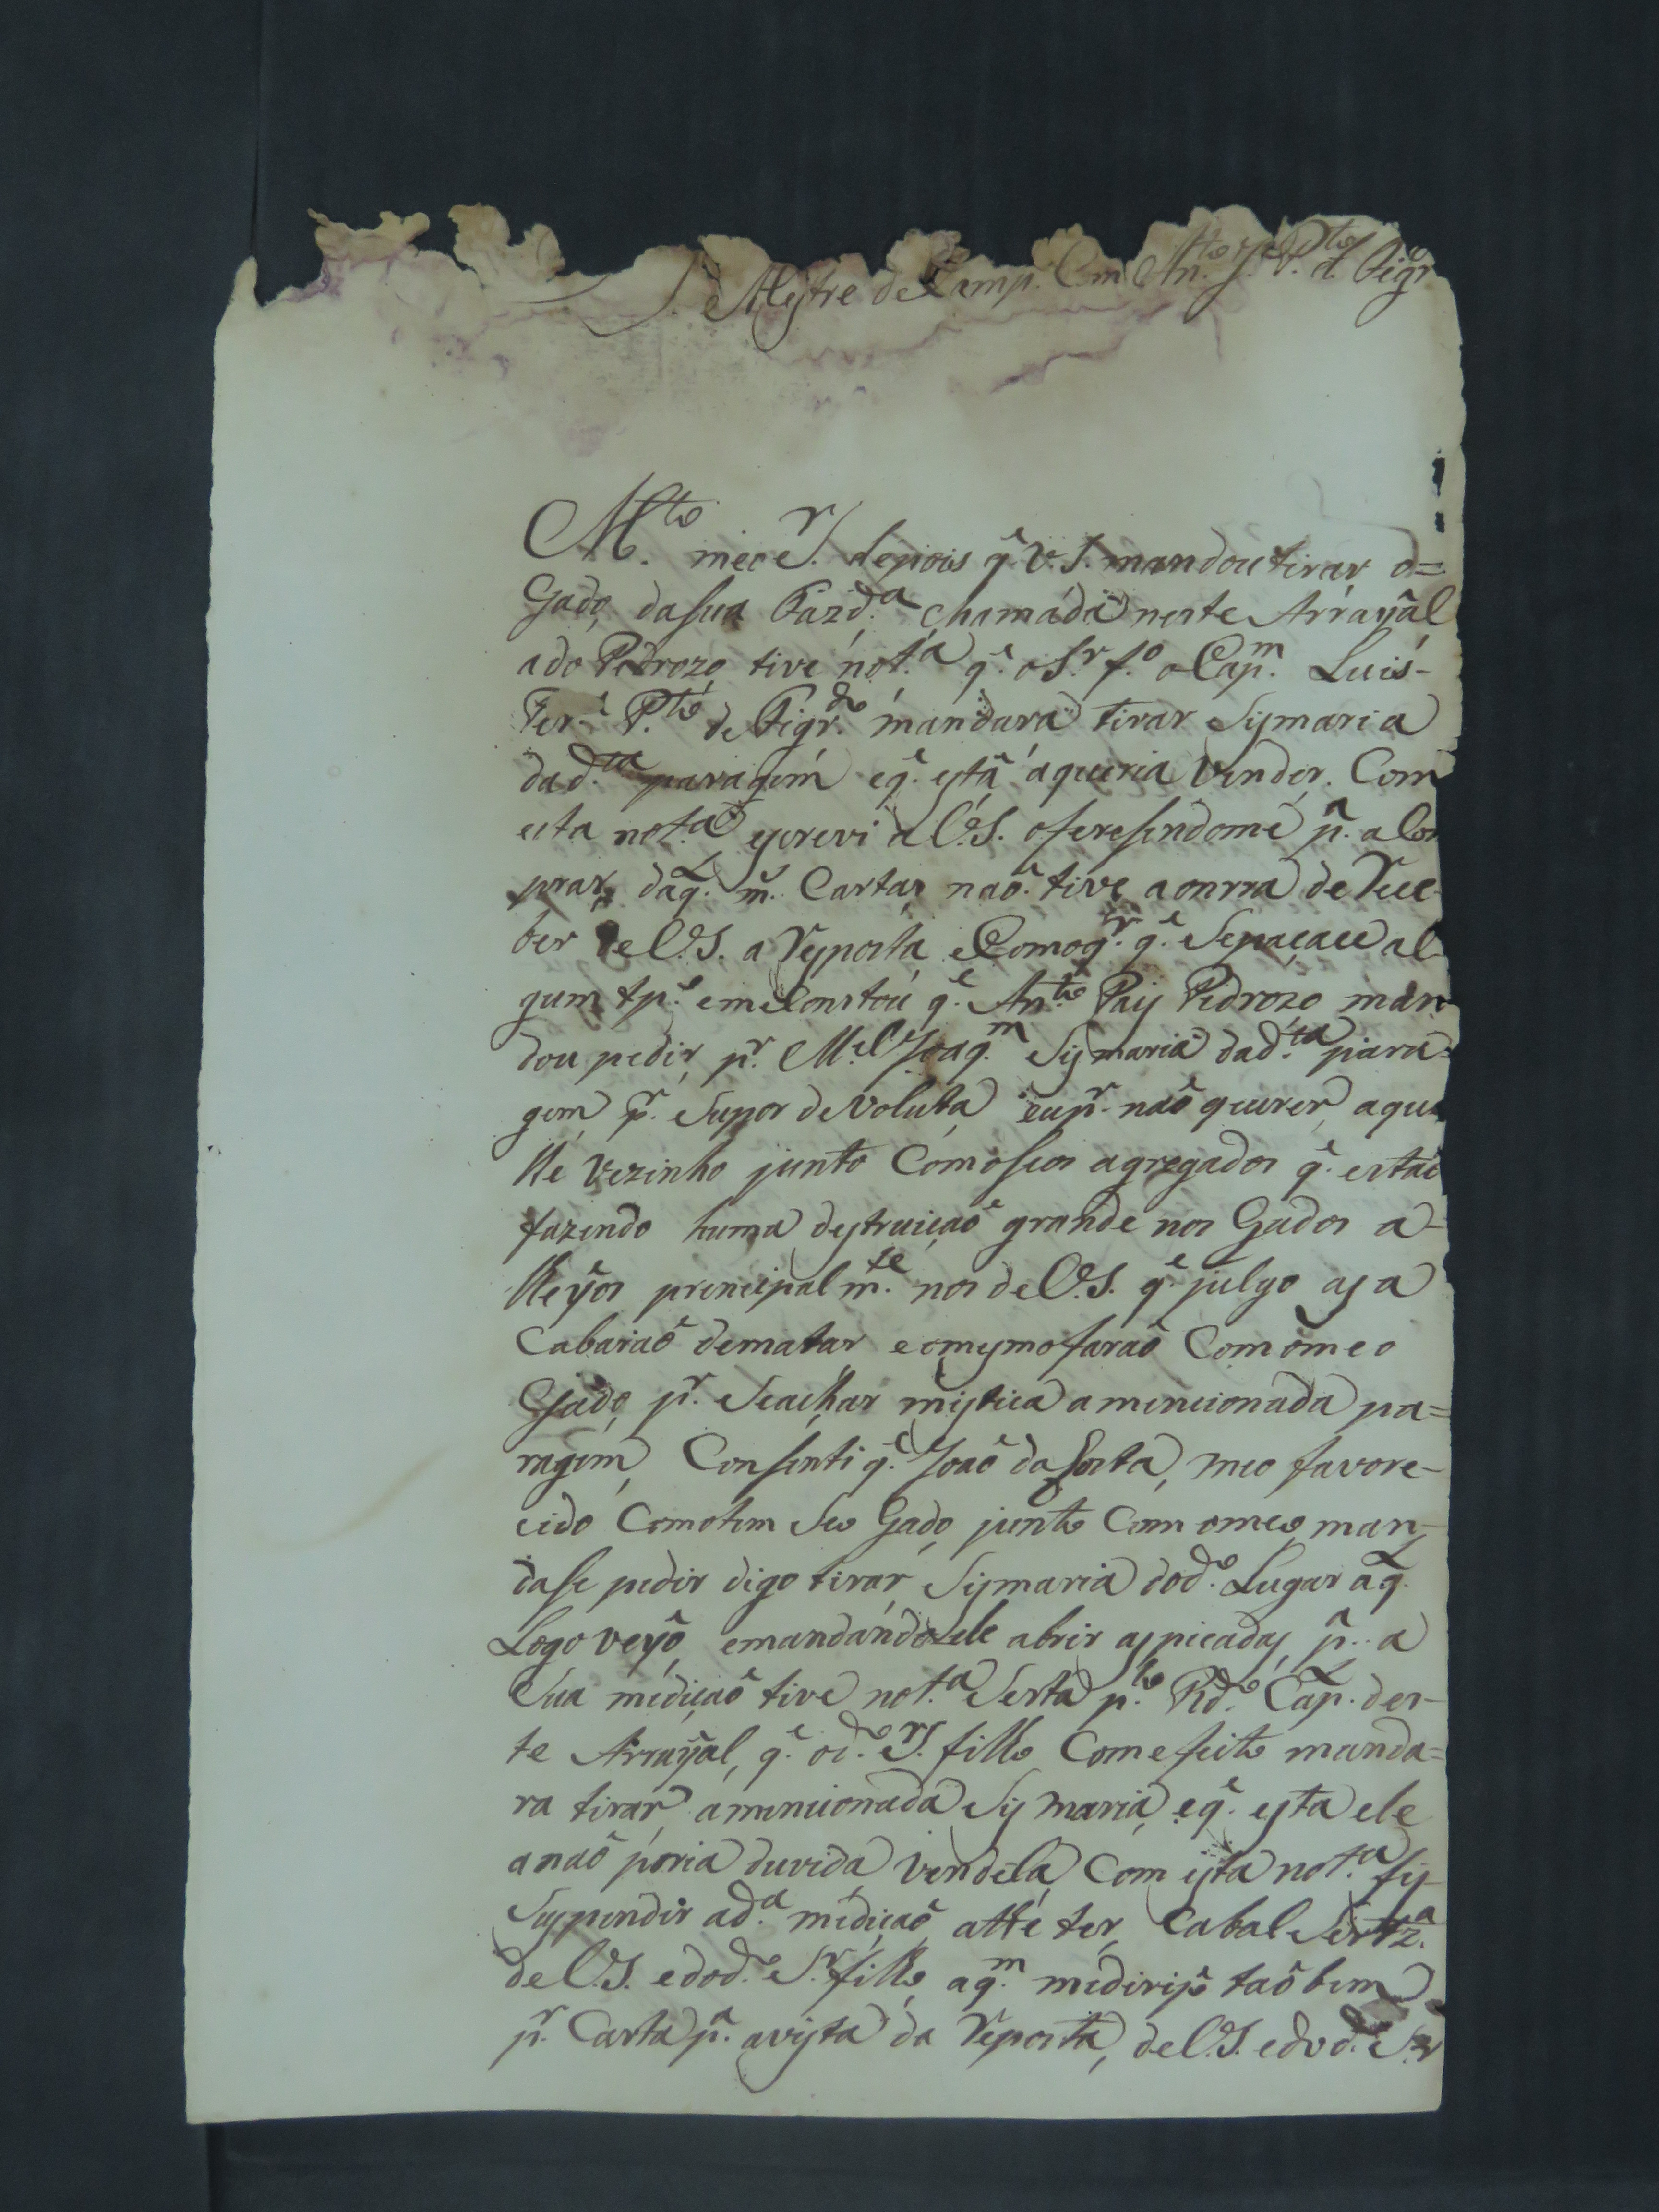 S. Mestre de Camp. Com An.to J.e P.to d. Figr
M.to meo S.r depois q.̃ V.S. mandou tirar o=
Gado, da sua Fazd.a chamada neste Arrayal
a do Pedrozo tive not.a q.̃ o S.r f.o o Cap.m Luis-
Fer.a P.to de Figr.do mandara tirar Sysmaria
da d.ta paragem e q.̃ esta a queria vender. Com
esta not.a escrevi a V.S. oferesendome p.a a Com
prar, da q.l m. Cartas naõ tive a onrra de Rece-
ber de V.S. a Resposta, e Como q.r q.̃ Sepaçace al
gum tp.o eme Constou q.̃ An.to Pays Pedrozo man
dou pedir, p.r M.el Joaq.m Sysmaria da d.ta para=
gem p.r Supor devoluta, eu p.r naõ querer, aque
lle vezinho junto Com os seos agregados q.̃ estaõ
fazendo huma destruiçaõ grande nos Gados a-
lheyos principalm.te nos de V.S. q.̃ julgo as a
Cabaraõ de matar e o mesmo faraõ Com o meo
Gado, p.r Se achar mistica a mencionada pa=
ragem, Consenti q.̃ Joaõ da Costa, meo favore-
cido Como tem Seo Gado, junto Com o meo, man-
dase pedir digo tirar Sysmaria do d.o Lugar a q.l
Logo veyo, e mandando ele abrir as picadas, p.a a
Sua mediçaõ tive not.a Serta p.lo R.do Cap. des-
te Arrayal, q.̃ o d.o S.r filho Com efeito manda=
ra tirar, a mencionada Sysmaria, e q.̃ esta ele
a naõ poria duvida vendela, Com esta not.a fis
Suspender a d.a mediçaõ, athe ter, Cabal Sertz.a
de V.S. e do d.o S.r filho, a q.m me dirijo taõ bem
p.r Carta p.a a vista da Resposta, de V.S. e do d.o S.r